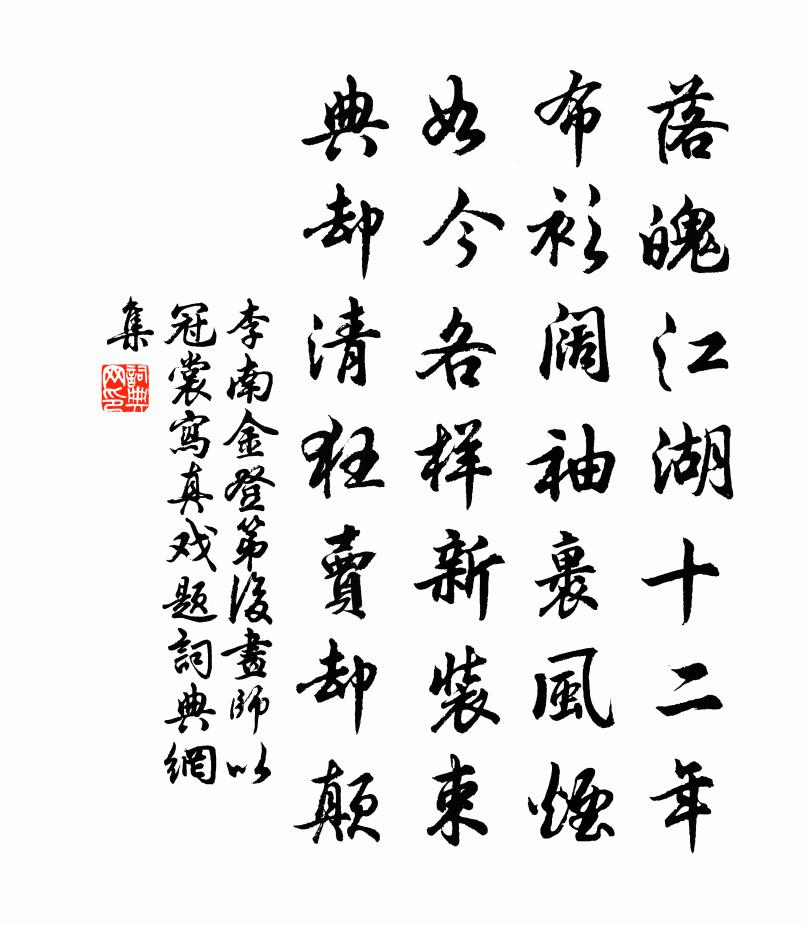 落魄江湖十二年
布衫阔袖裹風煙
如今各样新裝束
典却清狂賣却颠
李南金登第後畫師以
冠裳寫真戏題詞典網
集
詞典網印